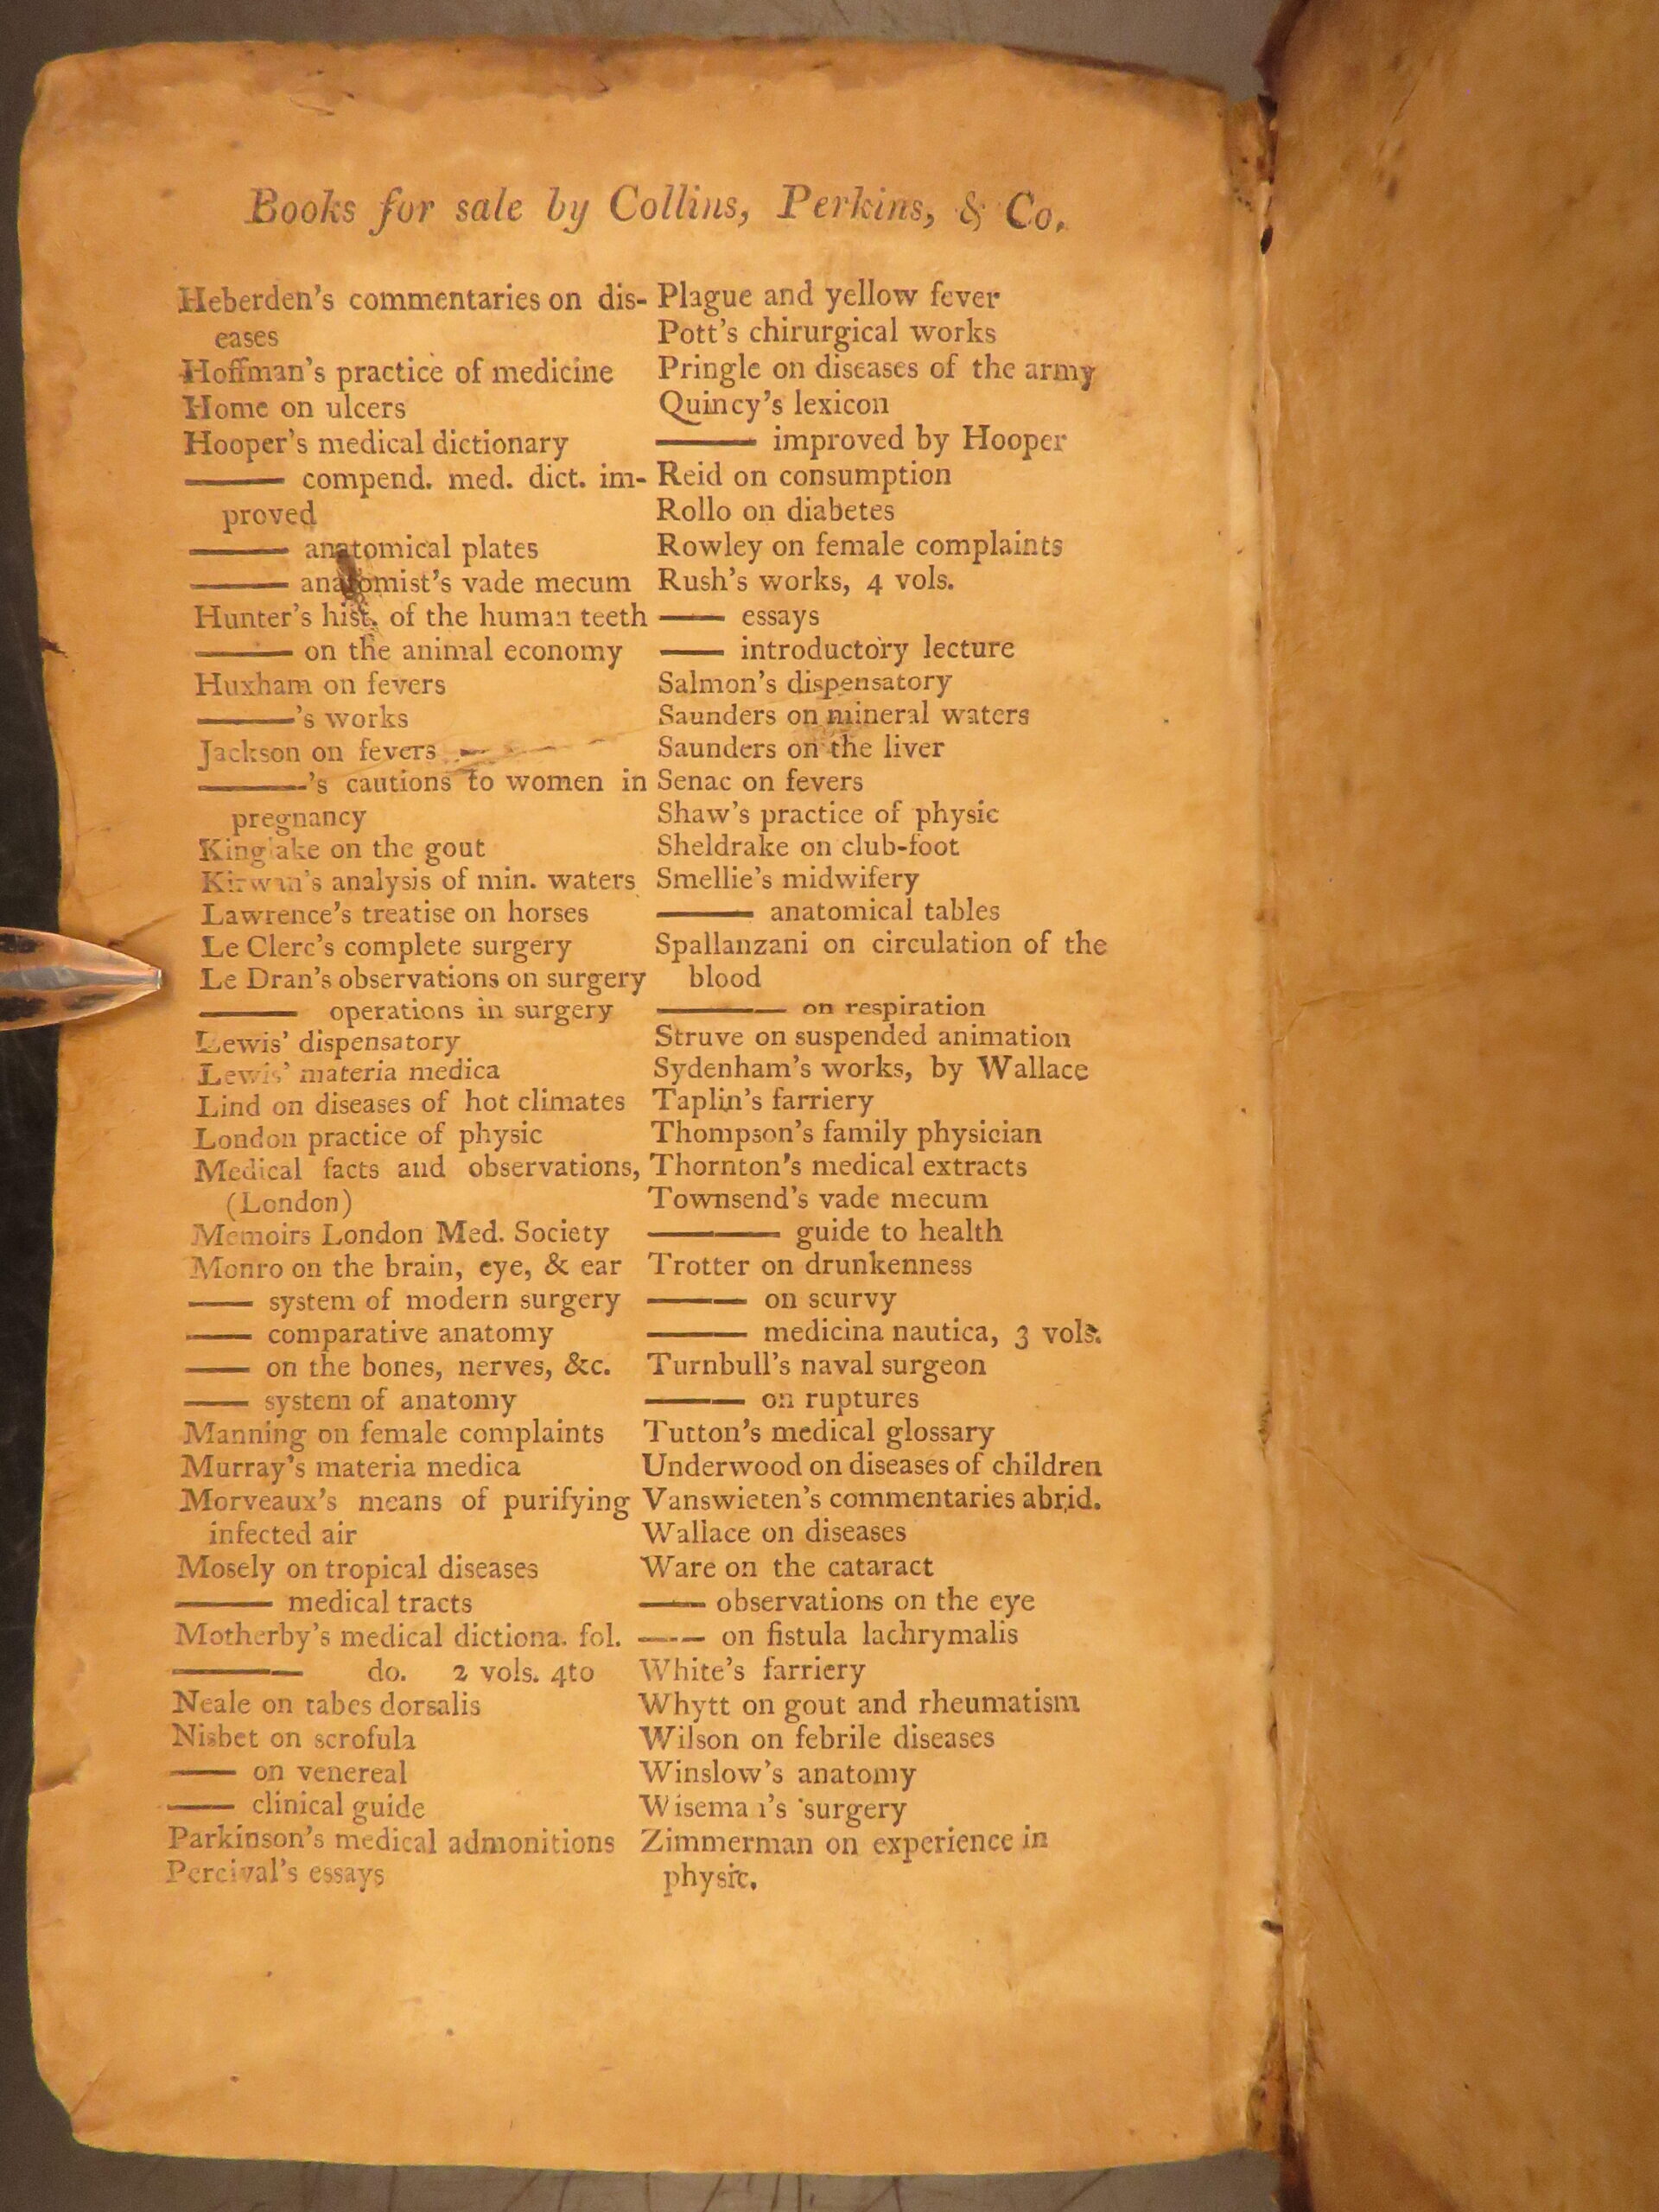 Books for sale by Collins, Perkins, & Co.
Heberden's commentaries on dis-
eases
Hoffman's practice of medicine
Home on ulcers
Hooper's medical dictionary
——— compend. med. dict. im-
proved
——— anatomical plates
——— anatomist's vade mecum
Hunter's hist. of the human teeth
——— on the animal economy
Huxham on fevers
———'s works
Jackson on fevers
———'s cautions to women in
pregnancy
Kinglake on the gout
Kirwan's analysis of min. waters
Lawrence's treatise on horses
Le Clerc's complete surgery
Le Dran's observations on surgery
——— operations in surgery
Lewis' dispensatory
Lewis' materia medica
Lind on diseases of hot climates
London practice of physic
Medical facts and observations,
(London)
Memoirs London Med. Society
Monro on the brain, eye, & ear
—— system of modern surgery
—— comparative anatomy
—— on the bones, nerves, &c.
—— system of anatomy
Manning on female complaints
Murray's materia medica
Morveaux's means of purifying
infected air
Mosely on tropical diseases
——— medical tracts
Motherby's medical dictiona. fol.
———— do. 2 vols. 4to
Neale on tabes dorsalis
Nisbet on scrofula
—— on venereal
—— clinical guide
Parkinson's medical admonitions
Percival's essays
Plague and yellow fever
Pott's chirurgical works
Pringle on diseases of the army
Quincy's lexicon
——— improved by Hooper
Reid on consumption
Rollo on diabetes
Rowley on female complaints
Rush's works, 4 vols.
—— essays
—— introductory lecture
Salmon's dispensatory
Saunders on mineral waters
Saunders on the liver
Senac on fevers
Shaw's practice of physic
Sheldrake on club-foot
Smellie's midwifery
——— anatomical tables
Spallanzani on circulation of the
blood
———— on respiration
Struve on suspended animation
Sydenham's works, by Wallace
Taplin's farriery
Thompson's family physician
Thornton's medical extracts
Townsend's vade mecum
———— guide to health
Trotter on drunkenness
——— on scurvy
——— medicina nautica, 3 vols.
Turnbull's naval surgeon
——— on ruptures
Tutton's medical glossary
Underwood on diseases of children
Vanswieten's commentaries abrid.
Wallace on diseases
Ware on the cataract
—— observations on the eye
—— on fistula lachrymalis
White's farriery
Whytt on gout and rheumatism
Wilson on febrile diseases
Winslow's anatomy
Wiseman's surgery
Zimmerman on experience in
physic.